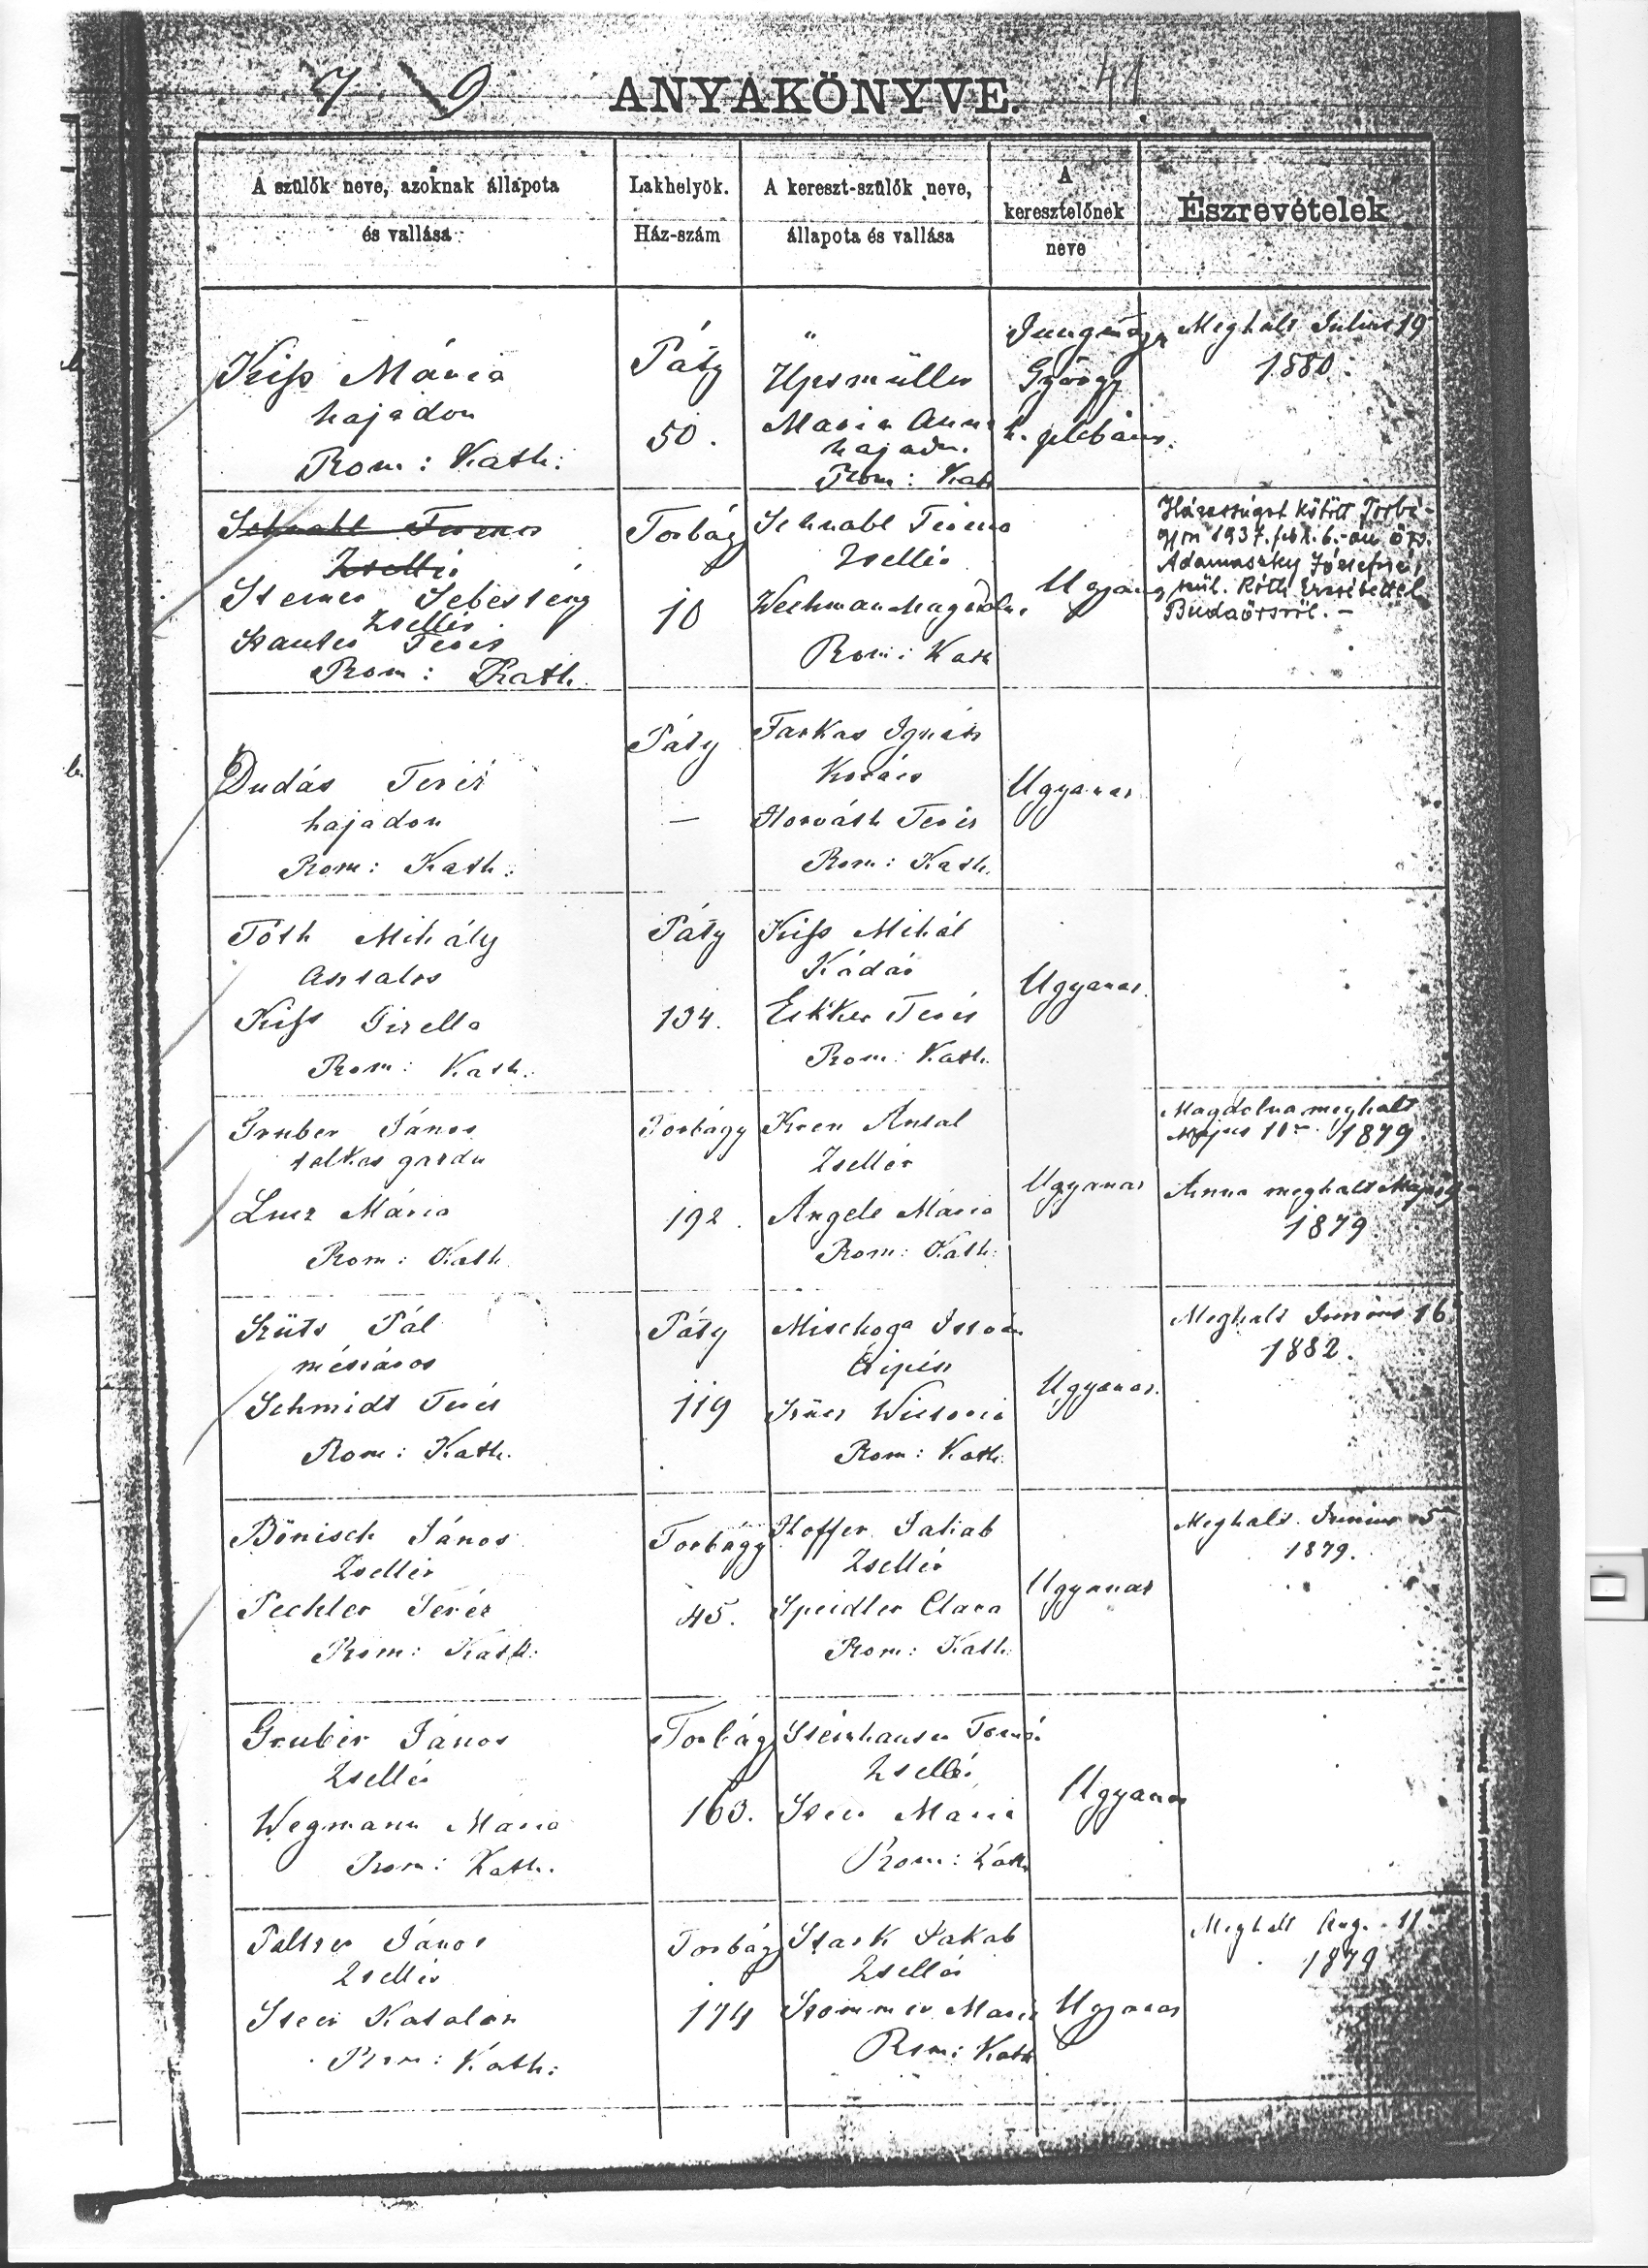 79 ANYAKÖNYVE. 41
A szülők neve, azoknak állapota
és vallása
Lakhelyök.
Ház-szám
A kereszt-szülők neve,
állapota és vallása
A
keresztelőnek
neve
Észrevételek
Kiss Mária
hajadon
Rom: Kath:
Páty
50.
"
Maria Anna
hajadn.
Rom: Kath
György
h. plébános.
Meghalt Julius 19
1880.
Schnabl Ferencz
Zsellér
Sterner Sebestény
Zsellér
Teréz
Rom: Kath.
Torbágy
10
Schnabl Ferencz
Zsellér
Rom: Kath
Ugyanaz
Házasságot kötött Torbá-
gyon 1937. febr. 6.-án özv.
Adamaszky Józsefné
szül. Róth Erzsébettel
Budaörsről. -
Dudás Teréz
hajadon
Rom: Kath:
Páty
—
Farkas Ignátz
Kovács
Horváth Teréz
Rom: Kath.
Ugyanaz
Tóth Mihály
Asztalos
Kiss Gizella
Rom: Kath.
Páty
134.
Kiss Mihál
Kádár
Ekker Teréz
Rom: Kath.
Ugyanaz.
Gruber János
Mária
Rom: Kath.
Torbágy
192.
Kren Antal
Zsellér
Angele Mária
Rom: Kath:
Ugyanaz
Magdolna meghalt
1879.
Anna meghalt
1879
Szüts Pál
mészáros
Schmidt Teréz
Rom: Kath.
Páty
119
Mischoga István
Rom: Kath.
Ugyanaz.
Meghalt Junius 16
1882.
Bönisch János
Zsellér
Pechler Teréz
Rom: Kath:
Torbágy
45.
Hoffer Jakab
Zsellér
Speidler Clara
Rom: Kath:
Ugyanaz
Meghalt Junius 5
1879.
Gruber János
Zsellér
Wegmann Mária
Rom: Kath.
Torbágy
163.
Steinhauser
Zsellér
Steer Maria
Rom: Kath
Ugyanaz
Paltzer János
Zsellér
Steer Katalin
Rom: Kath:
Torbágy
174
Stark Jakab
Zsellér
Maria
Rom: Kath
Ugyanaz
Meghalt Aug. 11
1879